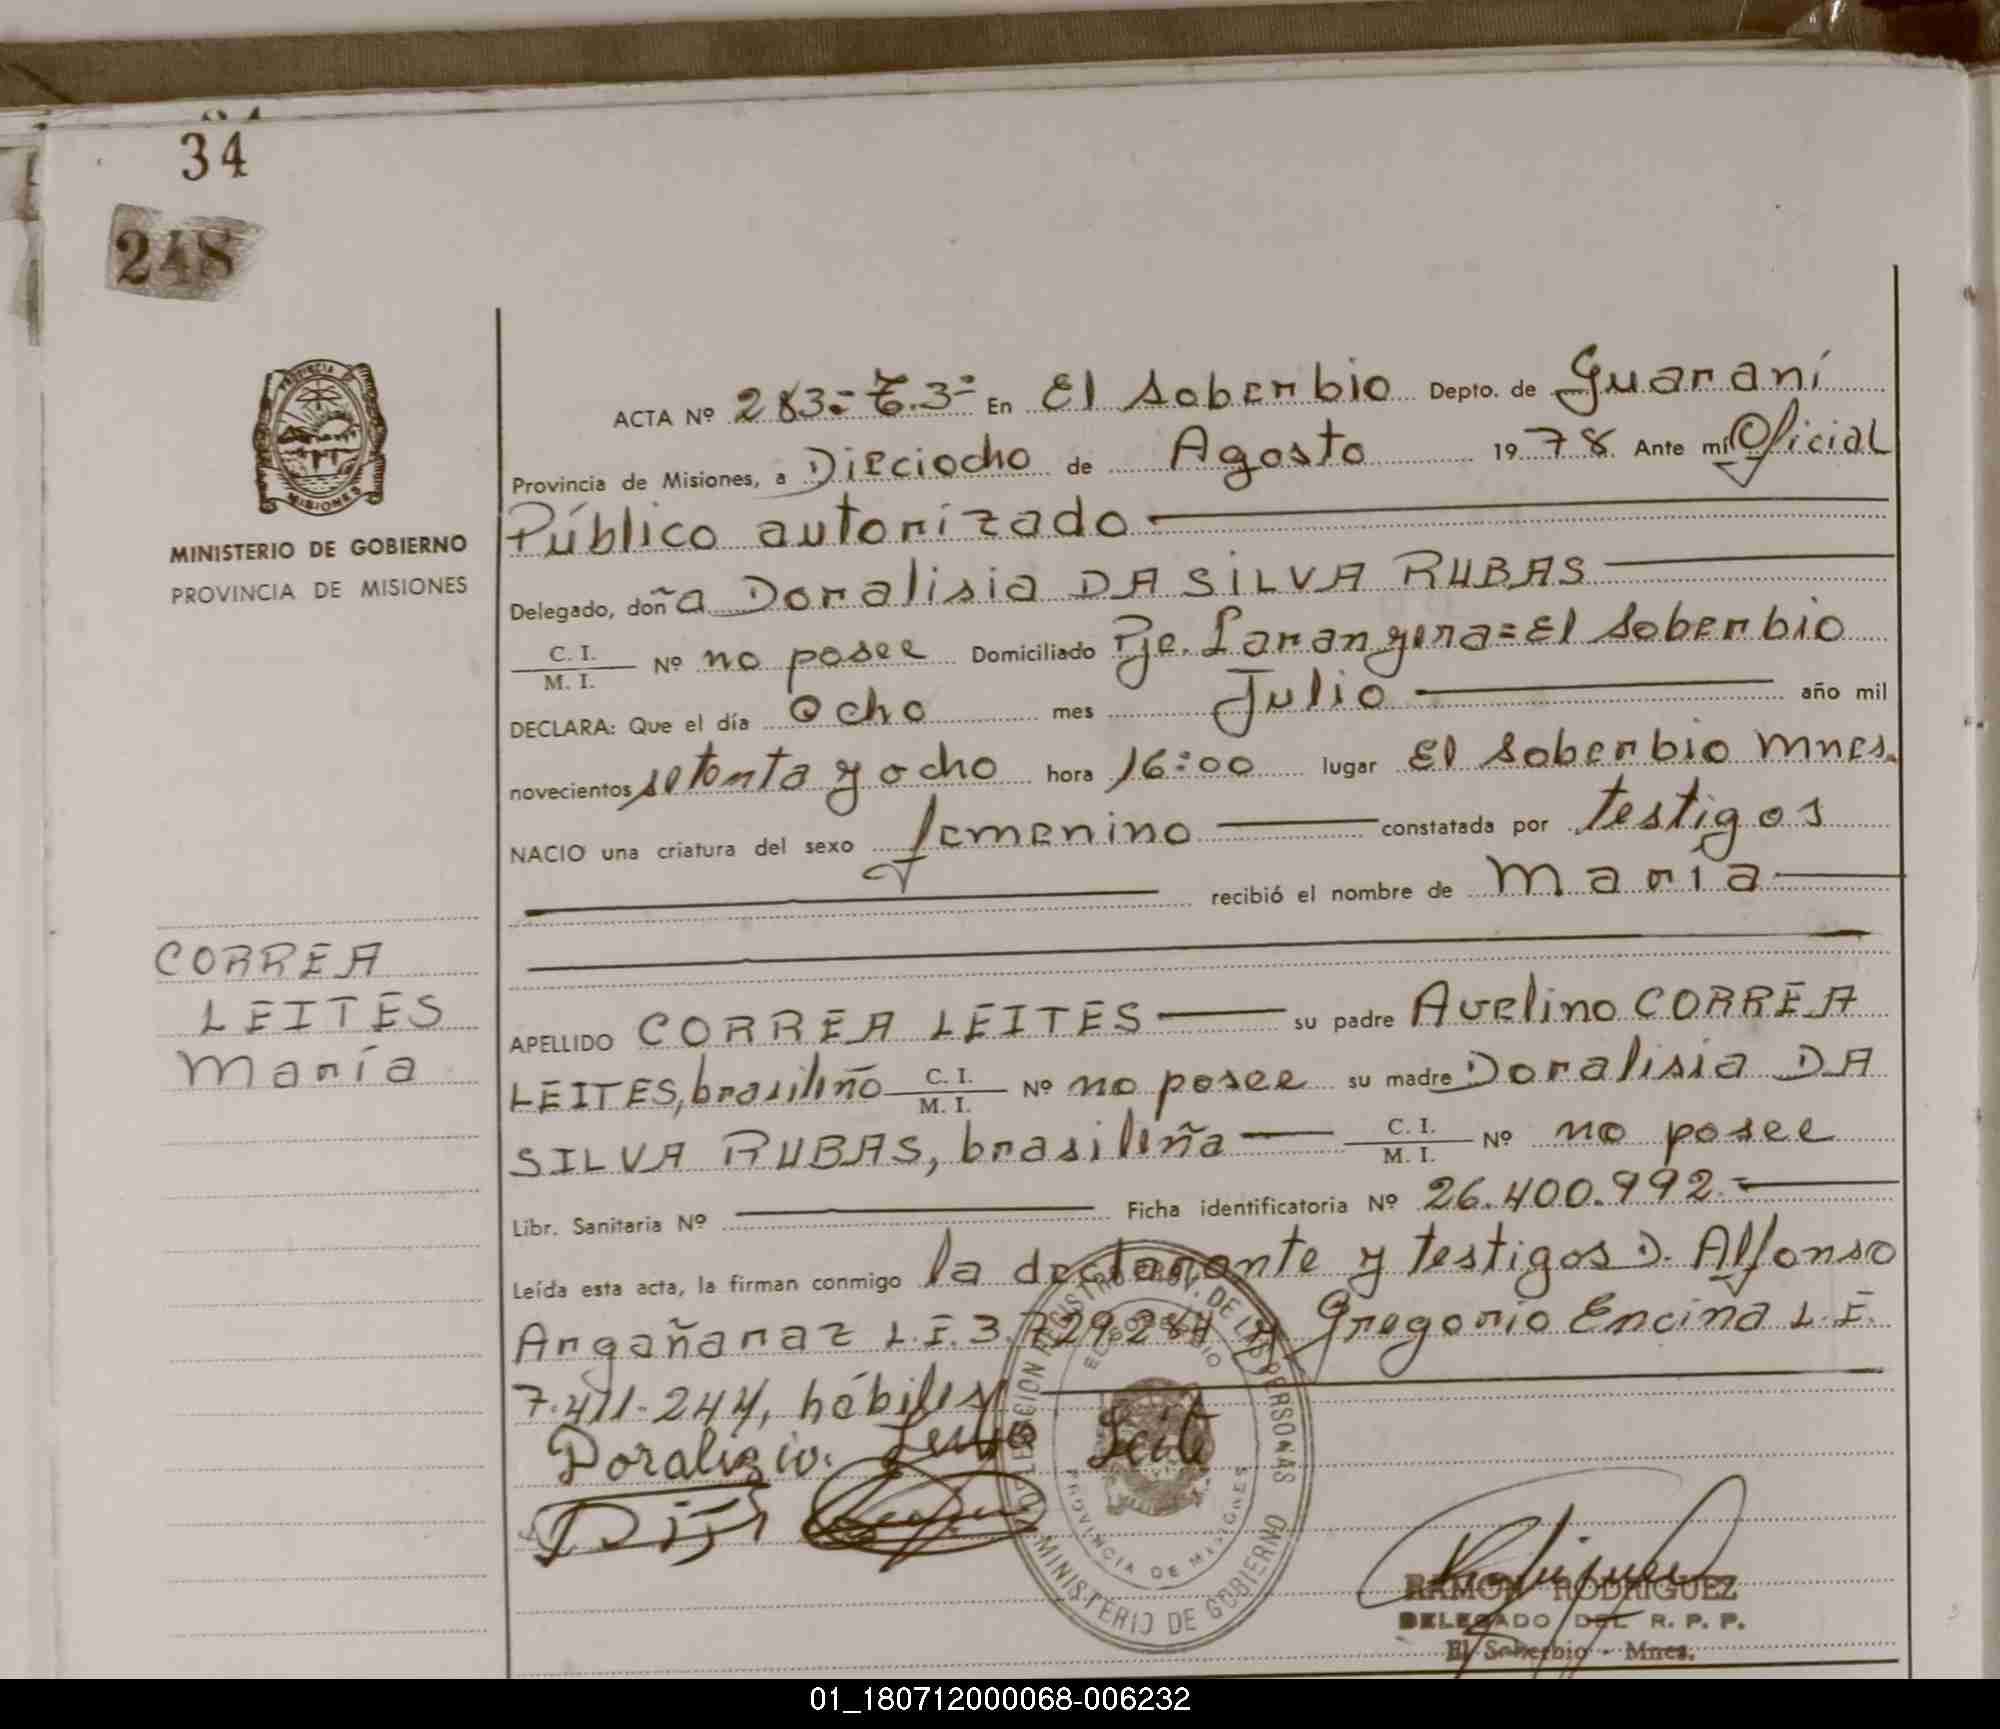 34
248
PROVINCIA DE
MISIONES
MINISTERIO DE GOBIERNO
PROVINCIA DE MISIONES
ACTA Nº 283=T.3º= En El Soberbio Depto. de Guaraní
Provincia de Misiones, a Dieciocho de Agosto 1978 Ante mí Oficial
Público autorizado
Delegado, doña Doralisia DA SILVA RUBAS
C. I.
M. I. Nº no posee Domiciliado Pje. Larangera=El Soberbio
DECLARA: Que el día Ocho mes Julio año mil
novecientos setenta y ocho hora 16:00 lugar El Soberbio Mnes.
NACIO una criatura del sexo femenino constatada por testigos
recibió el nombre de María
CORREA
LEITES
María
APELLIDO CORREA LEITES su padre Avelino CORREA
LEITES, brasileño C. I. M. I. Nº no posee su madre Doralisia DA
SILVA RUBAS, brasileña C. I. M. I. Nº no posee
Libr. Sanitaria Nº Ficha identificatoria Nº 26.400.992.
Leída esta acta, la firman conmigo la declarante y testigos D. Alfonso
Argañaraz L.E. 3.729.284 y Gregorio Encina L.E.
7.411.244, hábiles
Doralizio. Leite
REGISTRO PROV. DE LAS PERSONAS
EL SOBERBIO
PROVINCIA DE MISIONES
MINISTERIO DE GOBIERNO
RAMON RODRIGUEZ
DELEGADO DEL R. P. P.
El Soberbio - Mnes.
01_180712000068-006232